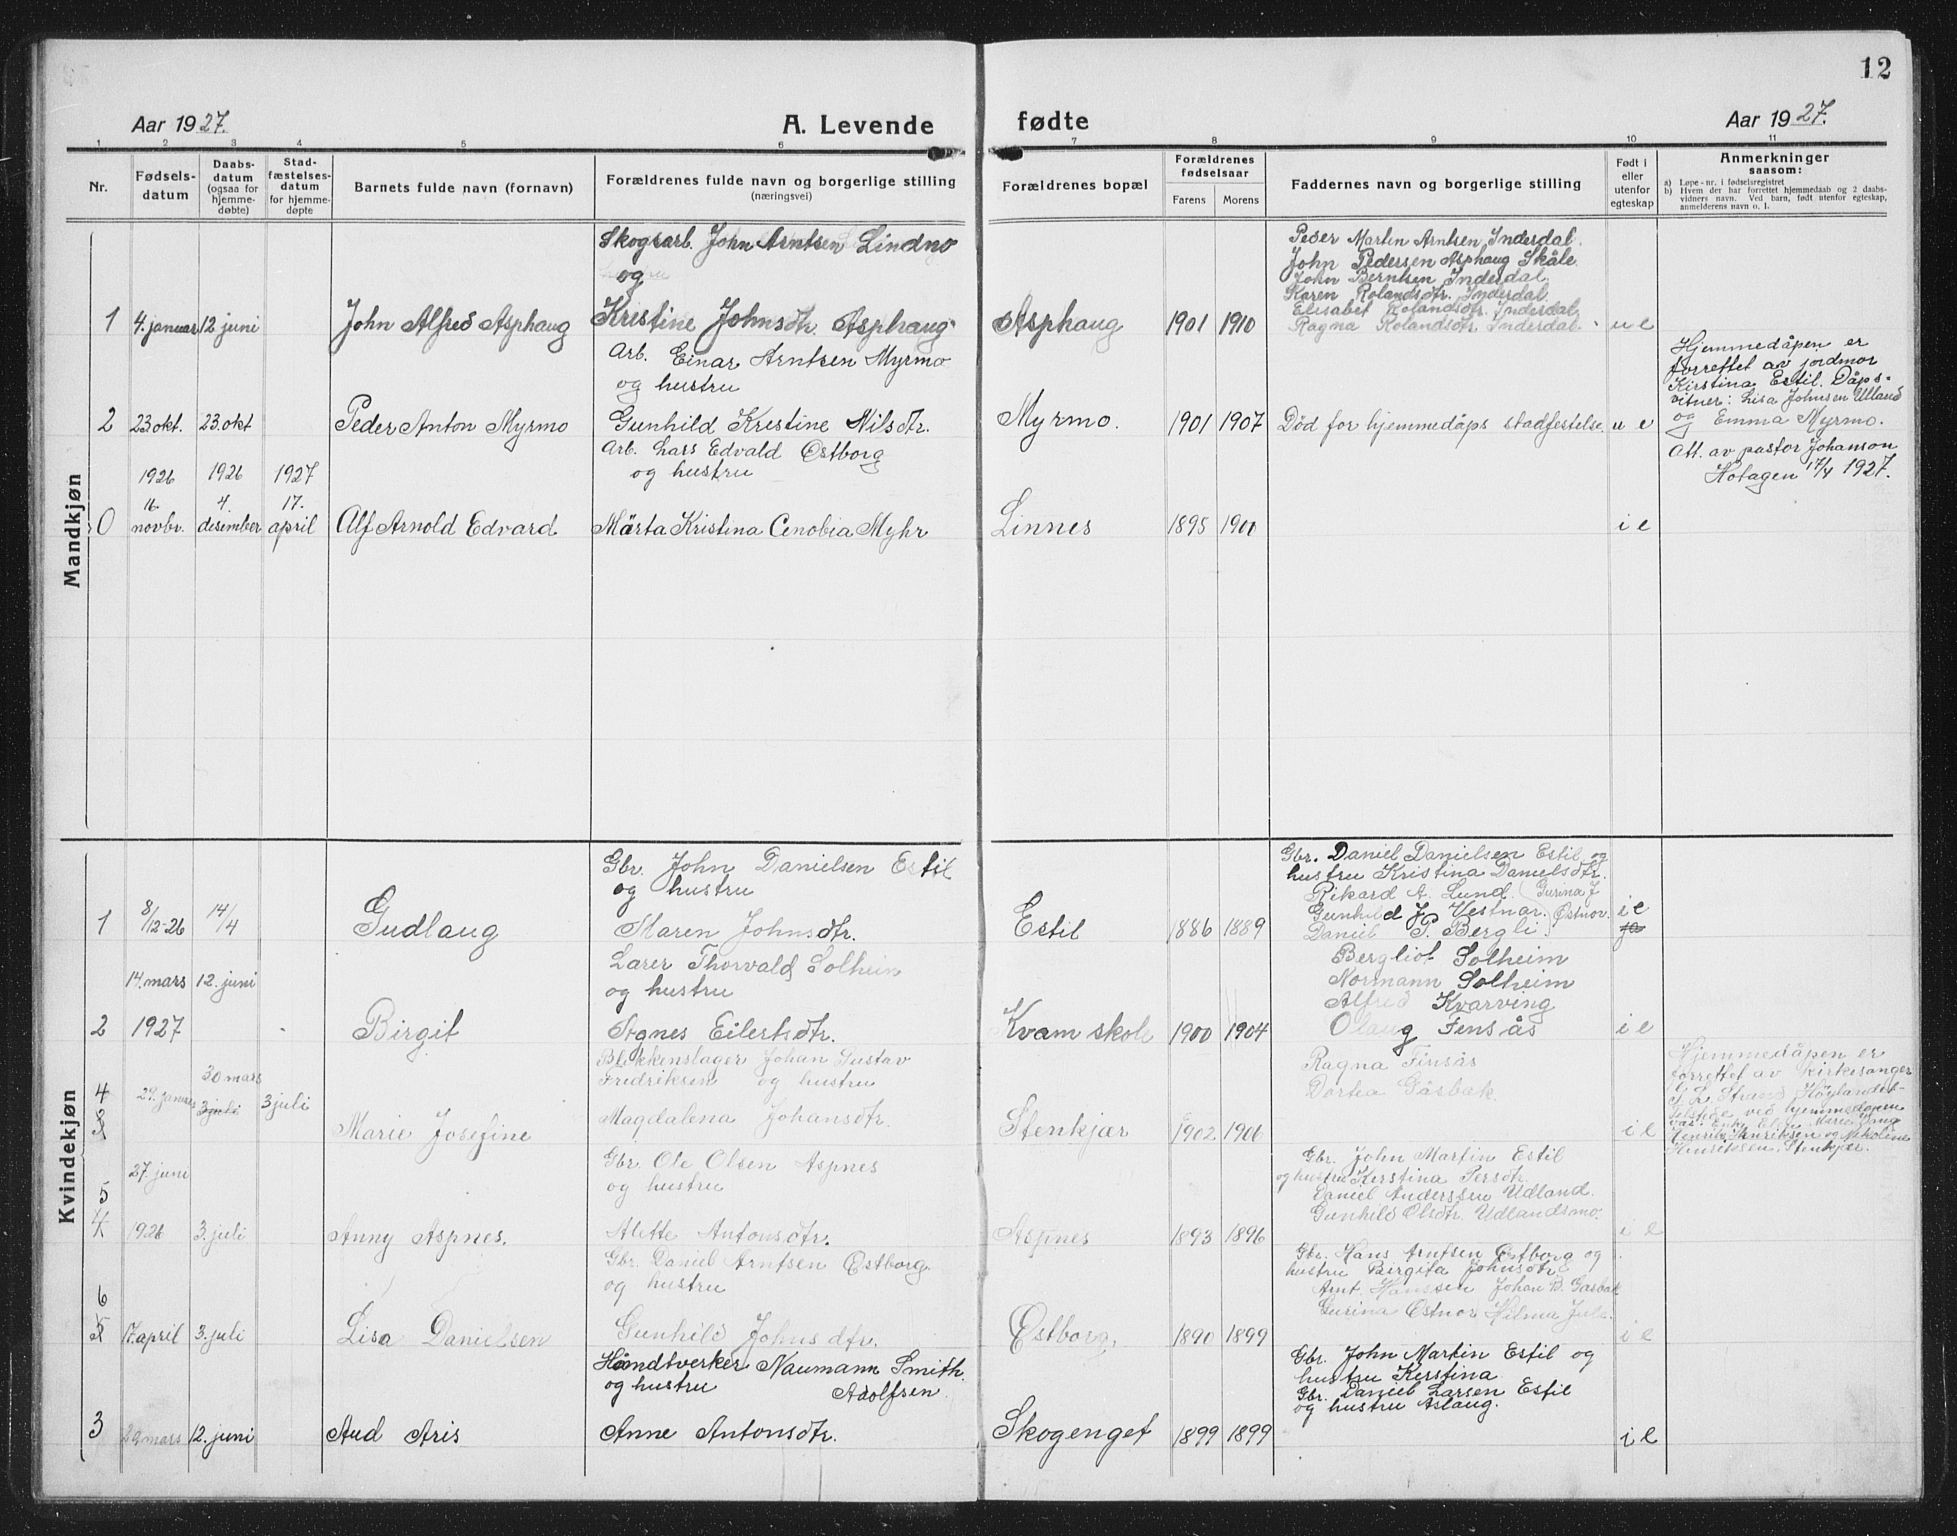 12
Aar 1927.
A. Levende
fødte
Aar 1927.
1 2 3 4 5 6 7 8 9 10 11
Nr.
Fødsels-
datum
Daabs-
datum
(ogsaa for
hjemme-
døbte)
Stad-
fæstelses-
datum
for hjemme-
døpte
Barnets fulde navn (fornavn)
Forældrenes fulde navn og borgerlige stilling
(næringsvei)
Forældrenes bopæl
Forældrenes
fødselsaar
Farens Morens
Faddernes navn og borgerlige stilling
Født i
eller
utenfor
egteskap
Anmerkninger
saasom:
a) Løpe-nr. i fødselsregistret
b) Hvem der har forrettet hjemmedaab og 2 daabs-
vidners navn. Ved barn, født utenfor egteskap,
anmelderens navn o. l.
Mandkjøn
1
4. januar
12 juni
John Alfred Asphaug
Skogsarb. John Arntsen Lindmo
og
Kristine Johnsdtr. Asphaug
Asphaug
1901 1910
Peder Martin Arntsen Inderdal.
John Pedersen Asphaug Skåle
John Berntsen Inderdal
Karen Rolandsdtr. Inderdal.
Elisabet Rolandsdtr. Inderdal,
Ragna Rolandsdtr. Inderdal.
u e
2
23. okt.
23. okt
Peder Anton Myrmo
Arb. Einar Arntsen Myrmo
og hustru
Gunhild Kristine Nilsdtr.
Myrmo.
1901 1907
Død for hjemmedåps stadfestelse.
u e
Hjemmedåpen er
forrettet av jordmor
Kirstina Estil. Dåps-
vitner: Lisa Johnsen Ulland
og Emma Myrmo.
0
1926
16.
novbr.
1926
4.
desember
1927
17.
april
Alf Arnold Edvard
Arb. Lars Edvald Østborg
og hustru
Märta Kristina Cenobia Myhr
Linnes
1895 1900
i e
Att. av pastor Johanson
Hotagen 17/4 1927.
Kvindekjøn
1
8/12-26
14/4
Gudlaug
Gbr. John Danielsen Estil
og hustru
Maren Johnsdtr.
Estil
1886 1889
Gbr. Daniel Danielsen Estil og
hustru Kristina Danielsdtr.
Rikard A. Lund. (Gurina J
Gunhild J. Vestnor. Østnor.
Daniel P. Bergli
i e
2
14. mars
1927
12. juni
Birgit
Lærer Thorvald Solheim
og hustru
Agnes Eilertsdtr.
Kvam skole
1900 1904
Bergliot Solheim
Normann Solheim
Alfred Kvarving
Olaug Finsås
i e
4
29. januar
30 mars
3 juli
3 juli
Marie Josefine
Blikkenslager Johan Gustav
Fredriksen og hustru
Magdalena Johansdtr.
Stenkjær
1902 1906
Ragna Finsås
Dortea Gåsbæk
i e
Hjemmedåpen er
forrettet av kirkesanger
Strand Höylandet
ved hjemmedåpen
Henrik Henriksen og Nikoline
Henriksen, Stenkjær.
5
4
27. juni
1926
3. juli
Anny Aspnes.
Gbr. Ole Olsen Aspnes
og hustru
Alette Antonsdtr.
Aspnes
1893 1896
Gbr. John Martin Estil
og hustru Kerstina Persdtr.
Daniel Anderssen Udland.
Gunhild Olsdtr. Udlandsmo.
i e
6
5
17. april
3. juli
Lisa Danielsen
Gbr. Daniel Arntsen Østborg
og hustru
Gunhild Johnsdtr.
Østborg,
1890 1899
Gbr. Hans Arntsen Østborg og
hustru Birgita Johnsdtr.
Arnt Hanssen Johan B. Gåsbak
Gurina Østnor Hilma Jule.
i e
3
29 mars
12. juni
Aud Aris
Håndtverker Naumann Smith.
og hustru Adolfsen
Anne Antonsdtr.
Skogenget
1899 1899
Gbr. John Martin Estil og
hustru Kerstina
Gbr. Daniel Larsen Estil
og hustru Aslaug.
i e